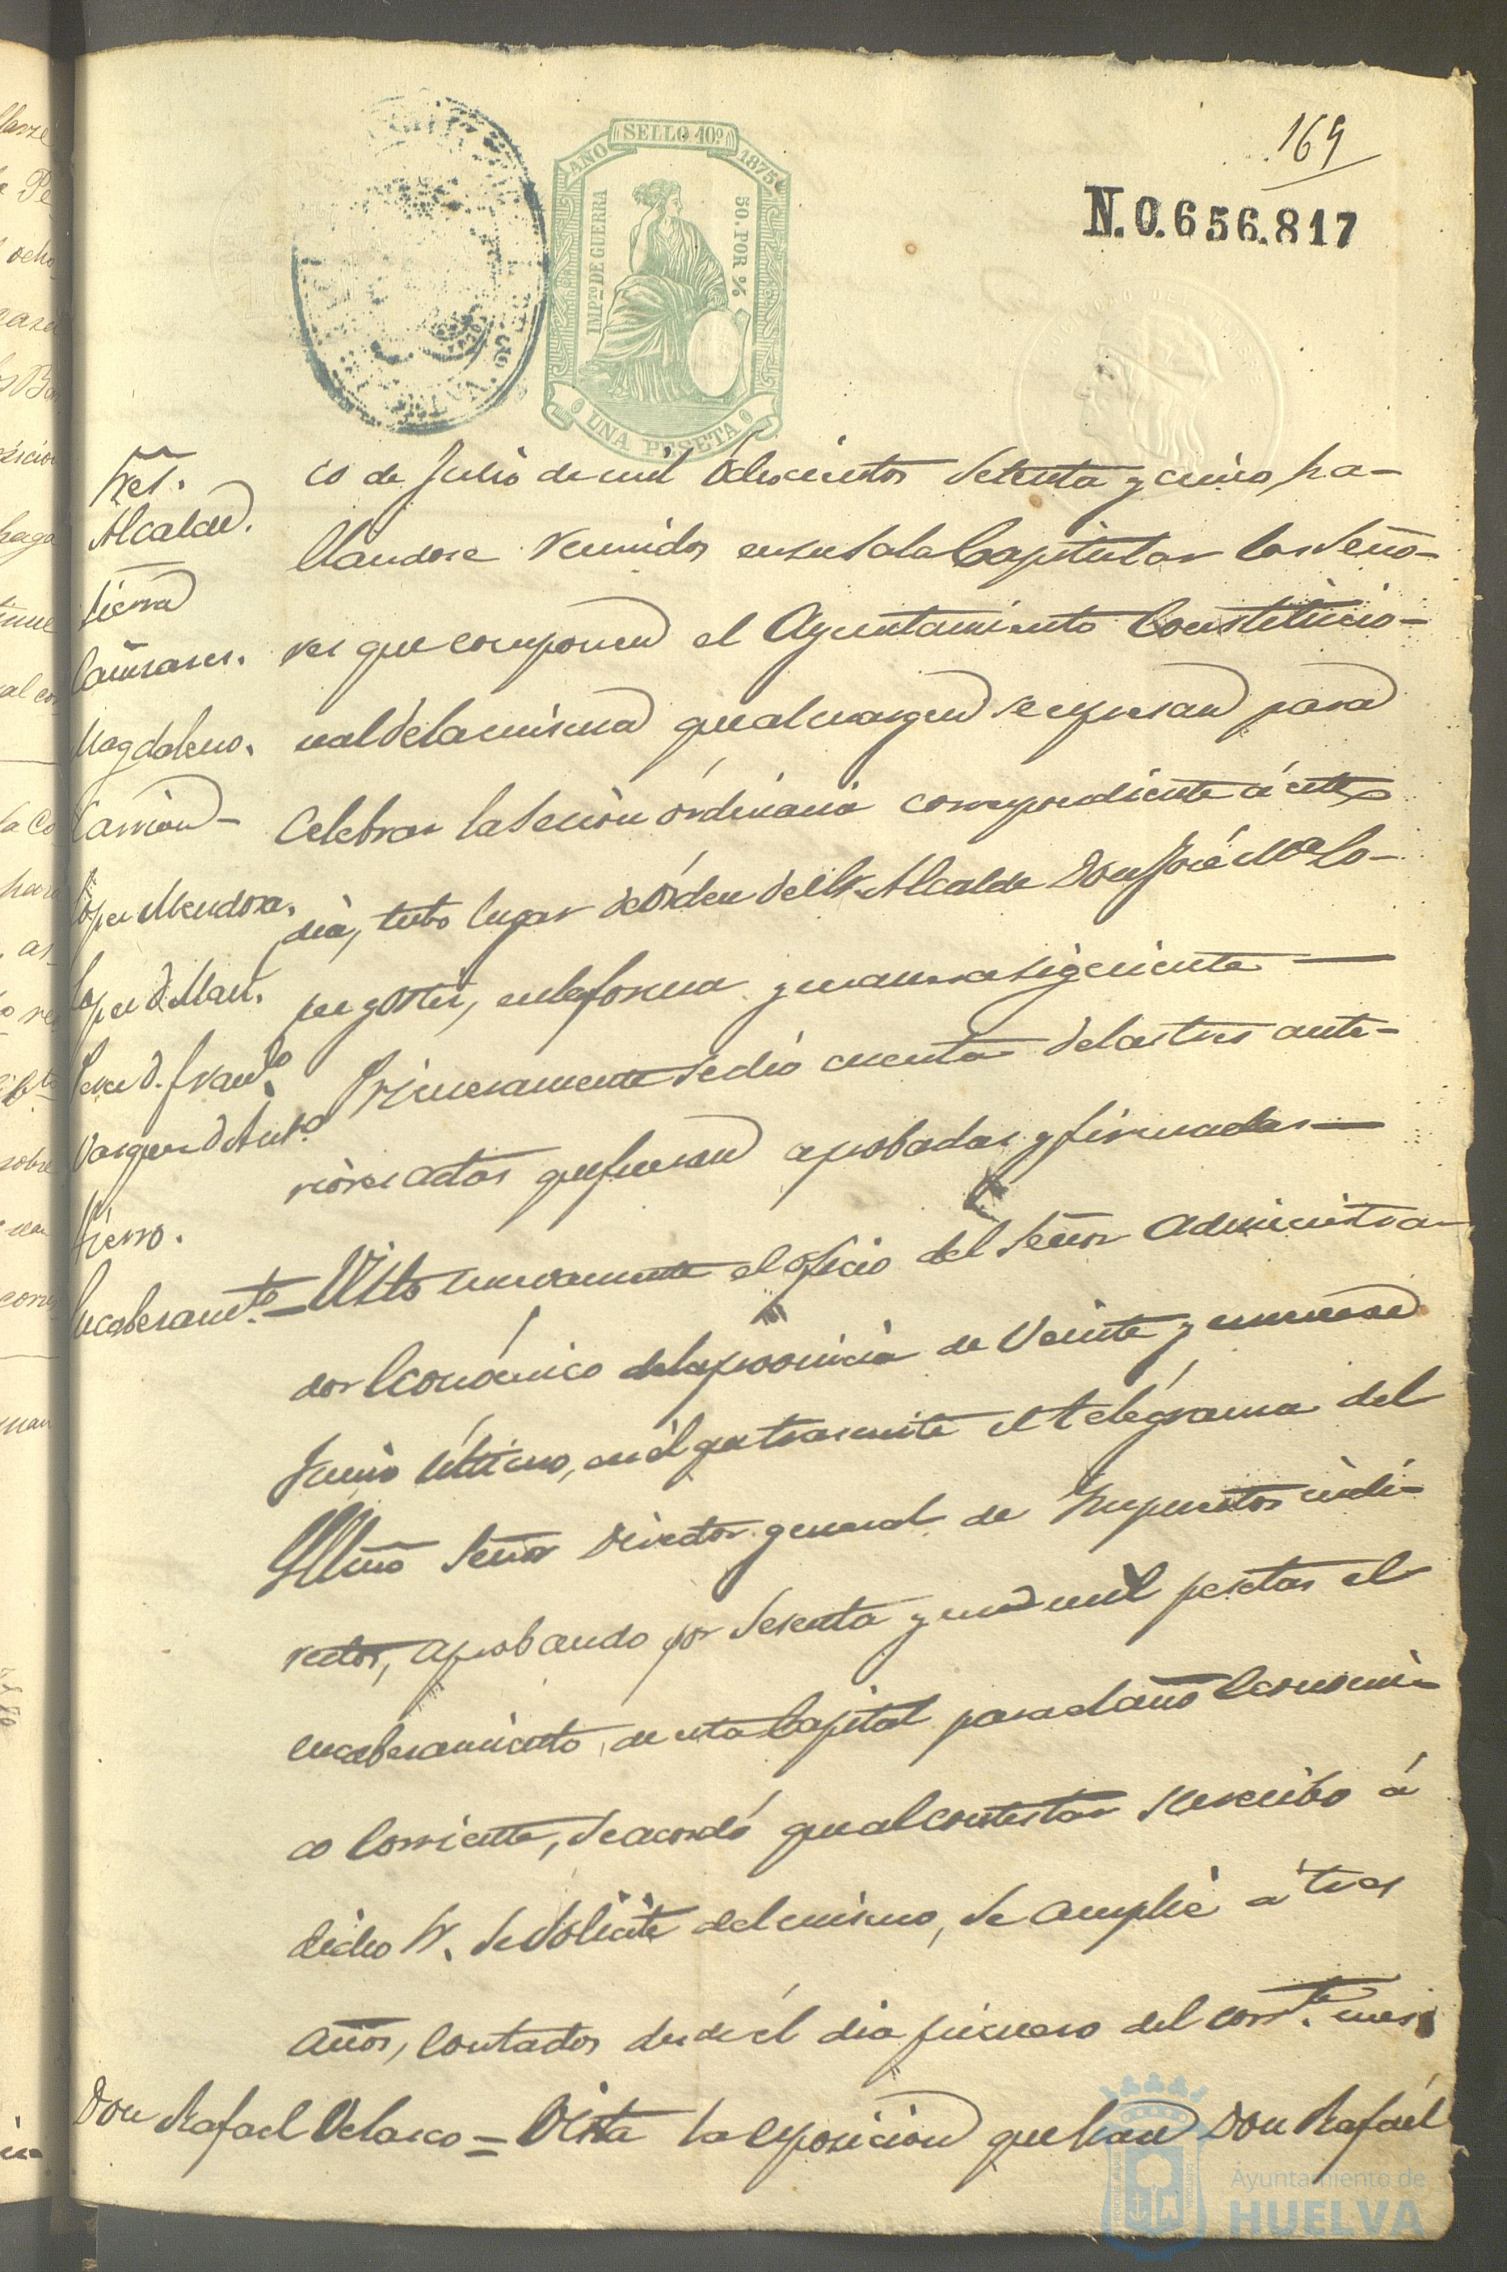 169
N.0.656.817
AÑO SELLO 10º 1875
IMPTO DE GUERRA
50. POR %
UNA PESETA
Sres.
Alcalde.
Sierra
Cañizares.
Magdaleno.
Carrion
Lopez Mendoza.
Lopez D. Man.
Perez D. Franco.
Vazquez D. Anto.
Fierro.
co de Julio de mil ochocientos setenta y cinco, ha-
llandose reunidos en su Sala Capitular los Seño-
res que componen el Ayuntamiento Constitucio-
nal de la misma que al margen se expresan para
celebrar la Sesion órdinaria correspondiente á este
dia, tubo lugar de órden del Sr. Alcalde Don José Ma Lo-
pez y Ortiz, en la forma y manera siguiente
Primeramente se dió cuenta de las tres ante-
riores actas que fueron aprobadas y firmadas
Encabezamto. = Visto nuevamente el oficio del Señor Administra-
dor Económico de la provincia de Veinte y nueve de
Junio último, en él que trasmite el telégrama del
Yllmo Señor Director general de Impuestos indi-
rectos, aprobando por sesenta y un mil pesetas el
encabezamiento de esta Capital para el año Económi-
co corriente, se acordó que al contestar su recibo á
dicho Sr. se solicite del mismo, se amplie á tres
años, contados desde él dia primero del corrte. mes
Don Rafael Velasco = Vista la exposicion que hace Don Rafaél
Ayuntamiento de
HUELVA